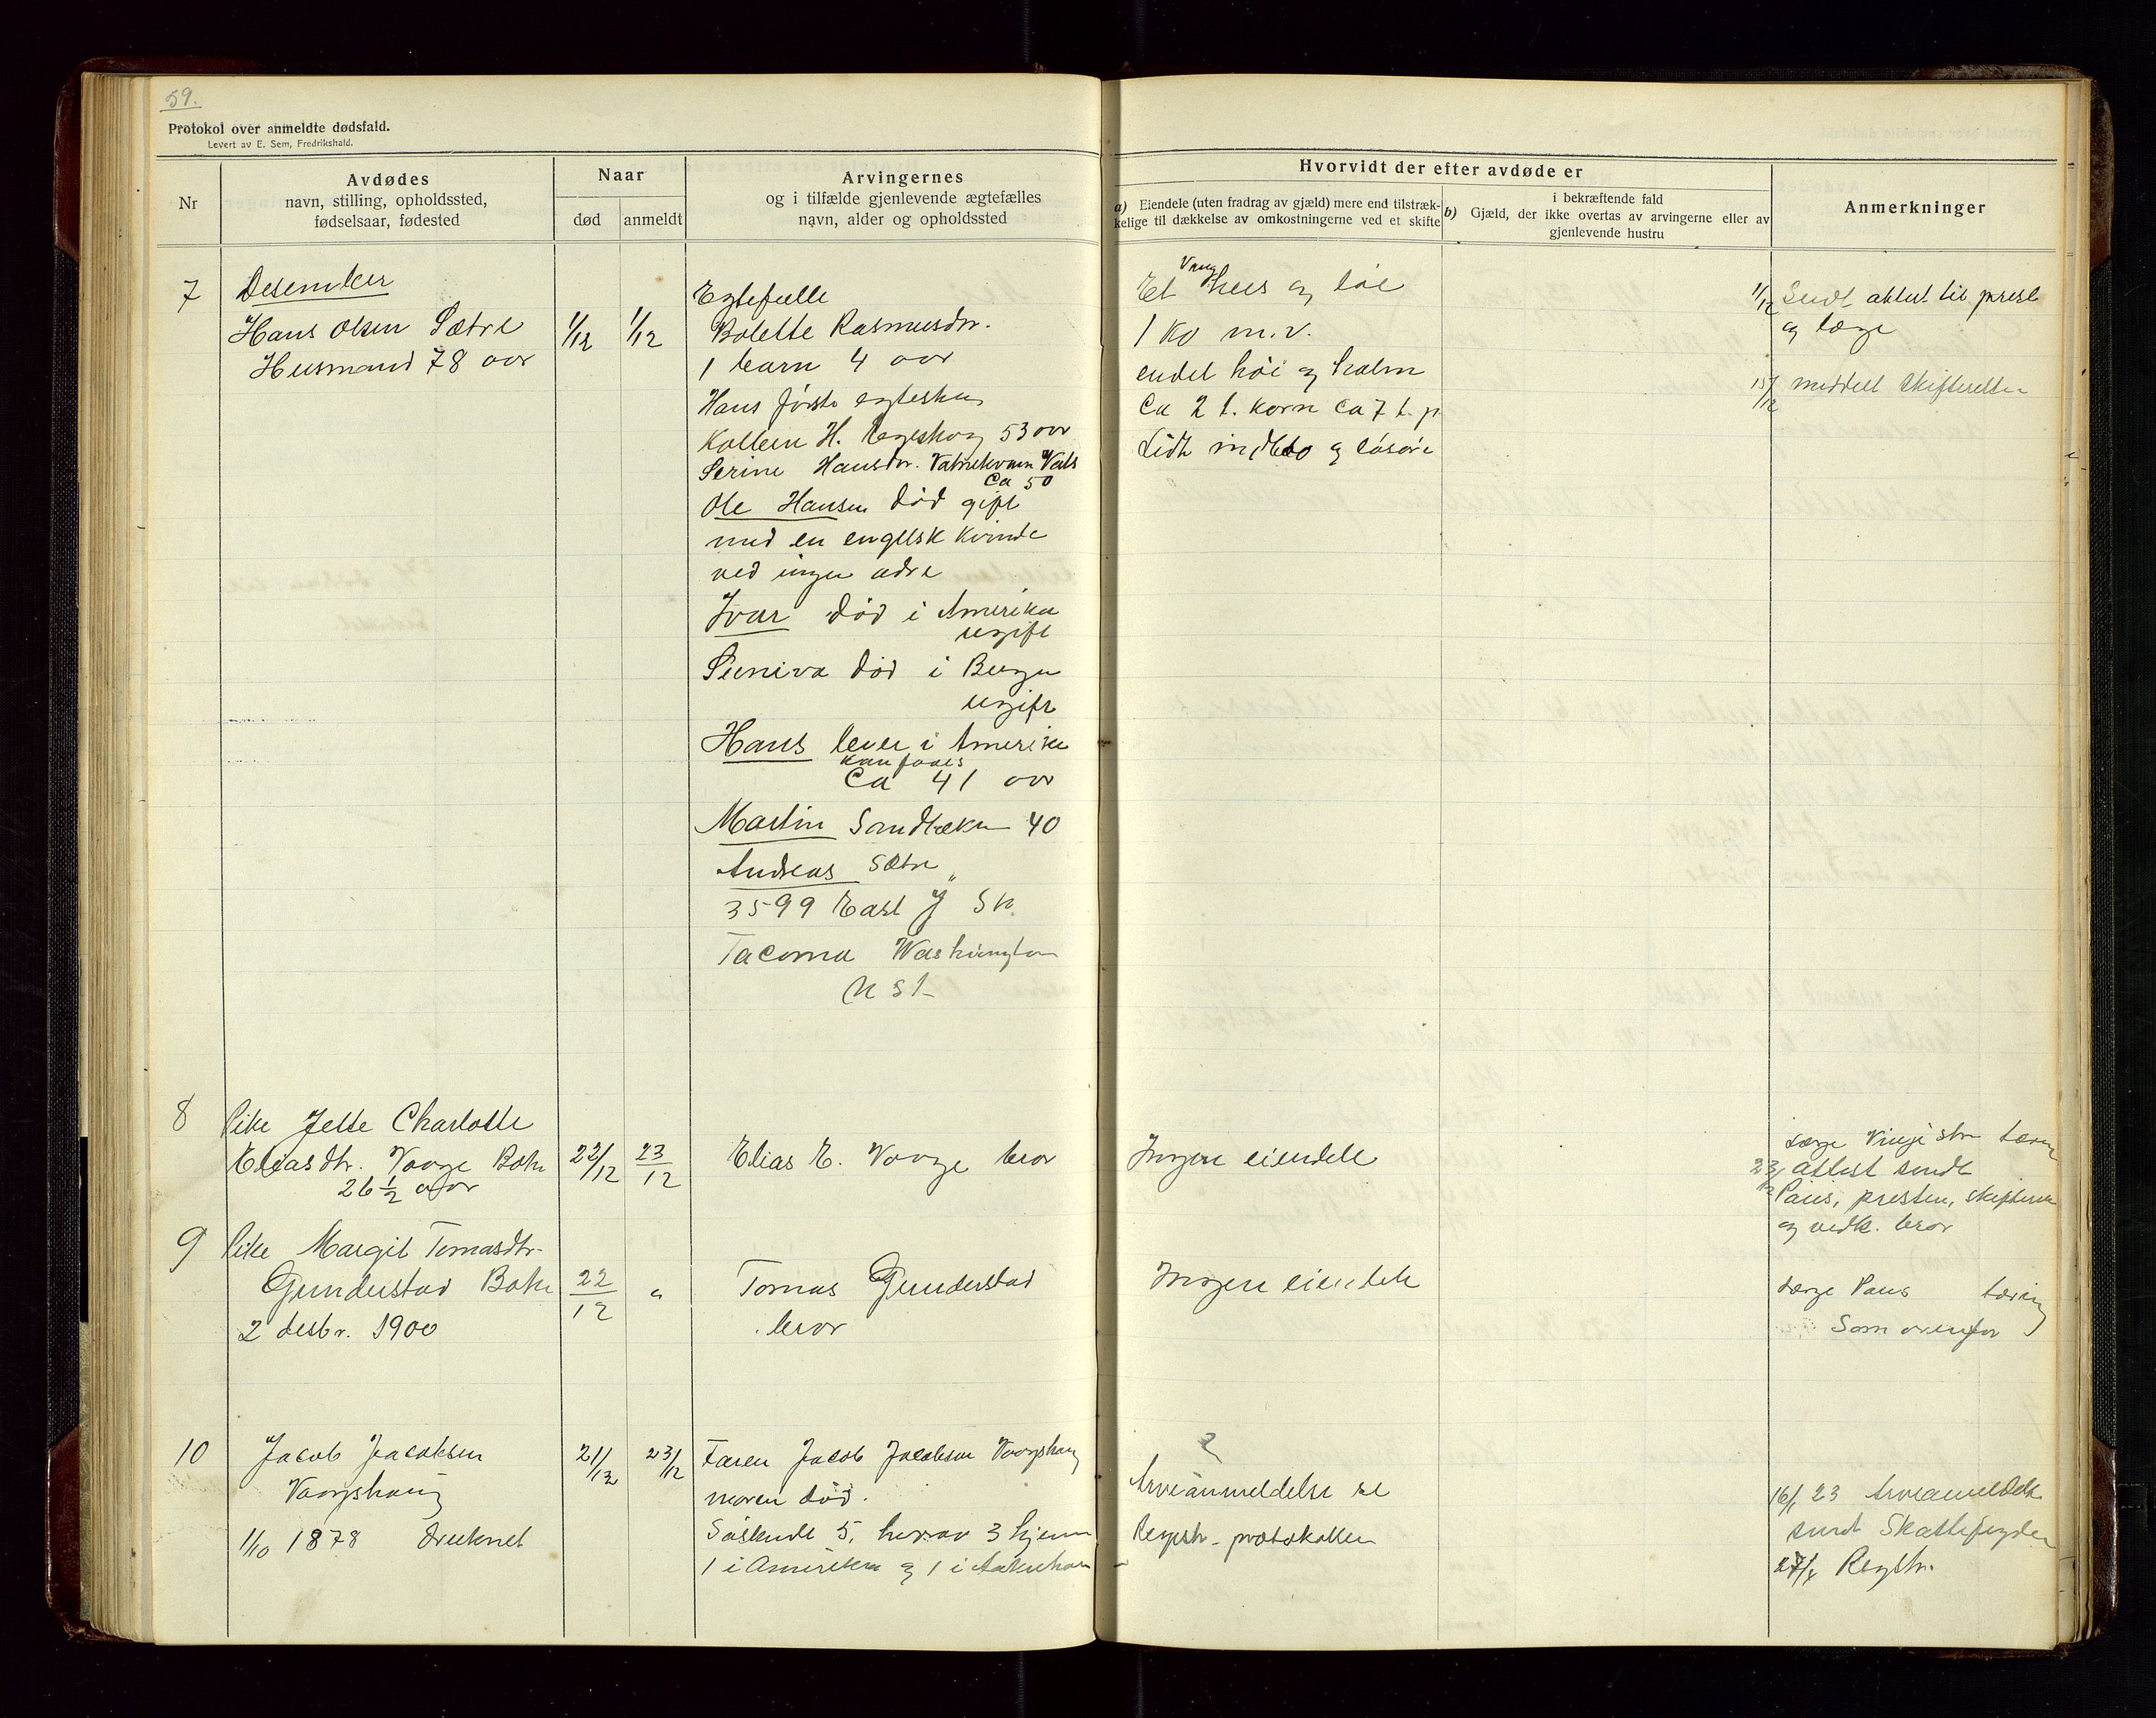 59.
Protokol over anmeldte dødsfald.
Levert av E. Sem, Fredrikshald.
Nr
Avdødes
navn, stilling, opholdssted,
fødselsaar, fødested
Naar
død
anmeldt
Arvingernes
og i tilfælde gjenlevende ægtefælles
navn, alder og opholdssted
Hvorvidt der efter avdøde er
a) Eiendele (uten fradrag av gjæld) mere end tilstræk-
kelige til dækkelse av omkostningerne ved et skifte
i bekræftende fald
b) Gjæld, der ikke overtas av arvingerne eller av
gjenlevende hustru
Anmerkninger
7
Desember
Hans Olsen Sætre
Husmand 78 aar
1/12
1/12
Egtefælle
Bolette Rasmusdtr.
1 barn 4 aar
Hans første egteskap
H. Egeskog 53 aar
Serine Hansdtr. Vatnekvam
Ca 50
Ole Hansen død gift
med en engelsk kvinde
ved ingen adre
Ivar død i Amerika
ugift
Suniva død i Bergen
ugift
Hans lever i Amerika
Ca 41 aar
Martin Sandbæken 40
Andreas Sætre "
3599 East J St.
Tacoma Washington
Et hus og løe
1 ko m.v.
endel høi og halm
Ca 2 t. korn Ca 7 t. p
Lidt indbo og løsøre
1/12 Sendt attest til prest
og læge
15/12 meddelt skifteretten
8
Pike Jette Charlotte
Eliasdtr. Vaage Bokn
26 1/2 aar
22/12
23/12
Elias E. Vaage bror
Ingen eiendele
Læge
23/12 attest sendt
Paus, presten, skifteren
og vedk. bror
9
Pike Margit Tomasdtr.
Gunderstad Bokn
2 desbr. 1900
22/12
"
Tomas Gunderstad
bror
Ingen eiendele
Læge Paus tæring
Som ovenfor
10
Jacob Jacobsen
Vaagshaug
1/10 1878 druknet
21/12
23/12
Faren Jacob Jacobsen Vaagshaug
moren død.
Søskende 5, herav 3 hjemme
1 i Amerika og 1 i
?
Arveanmeldelse se
Registr. protokollen
16/1 23 Arveanmeldelse
sendt Skattefogden
27/4 Registr.